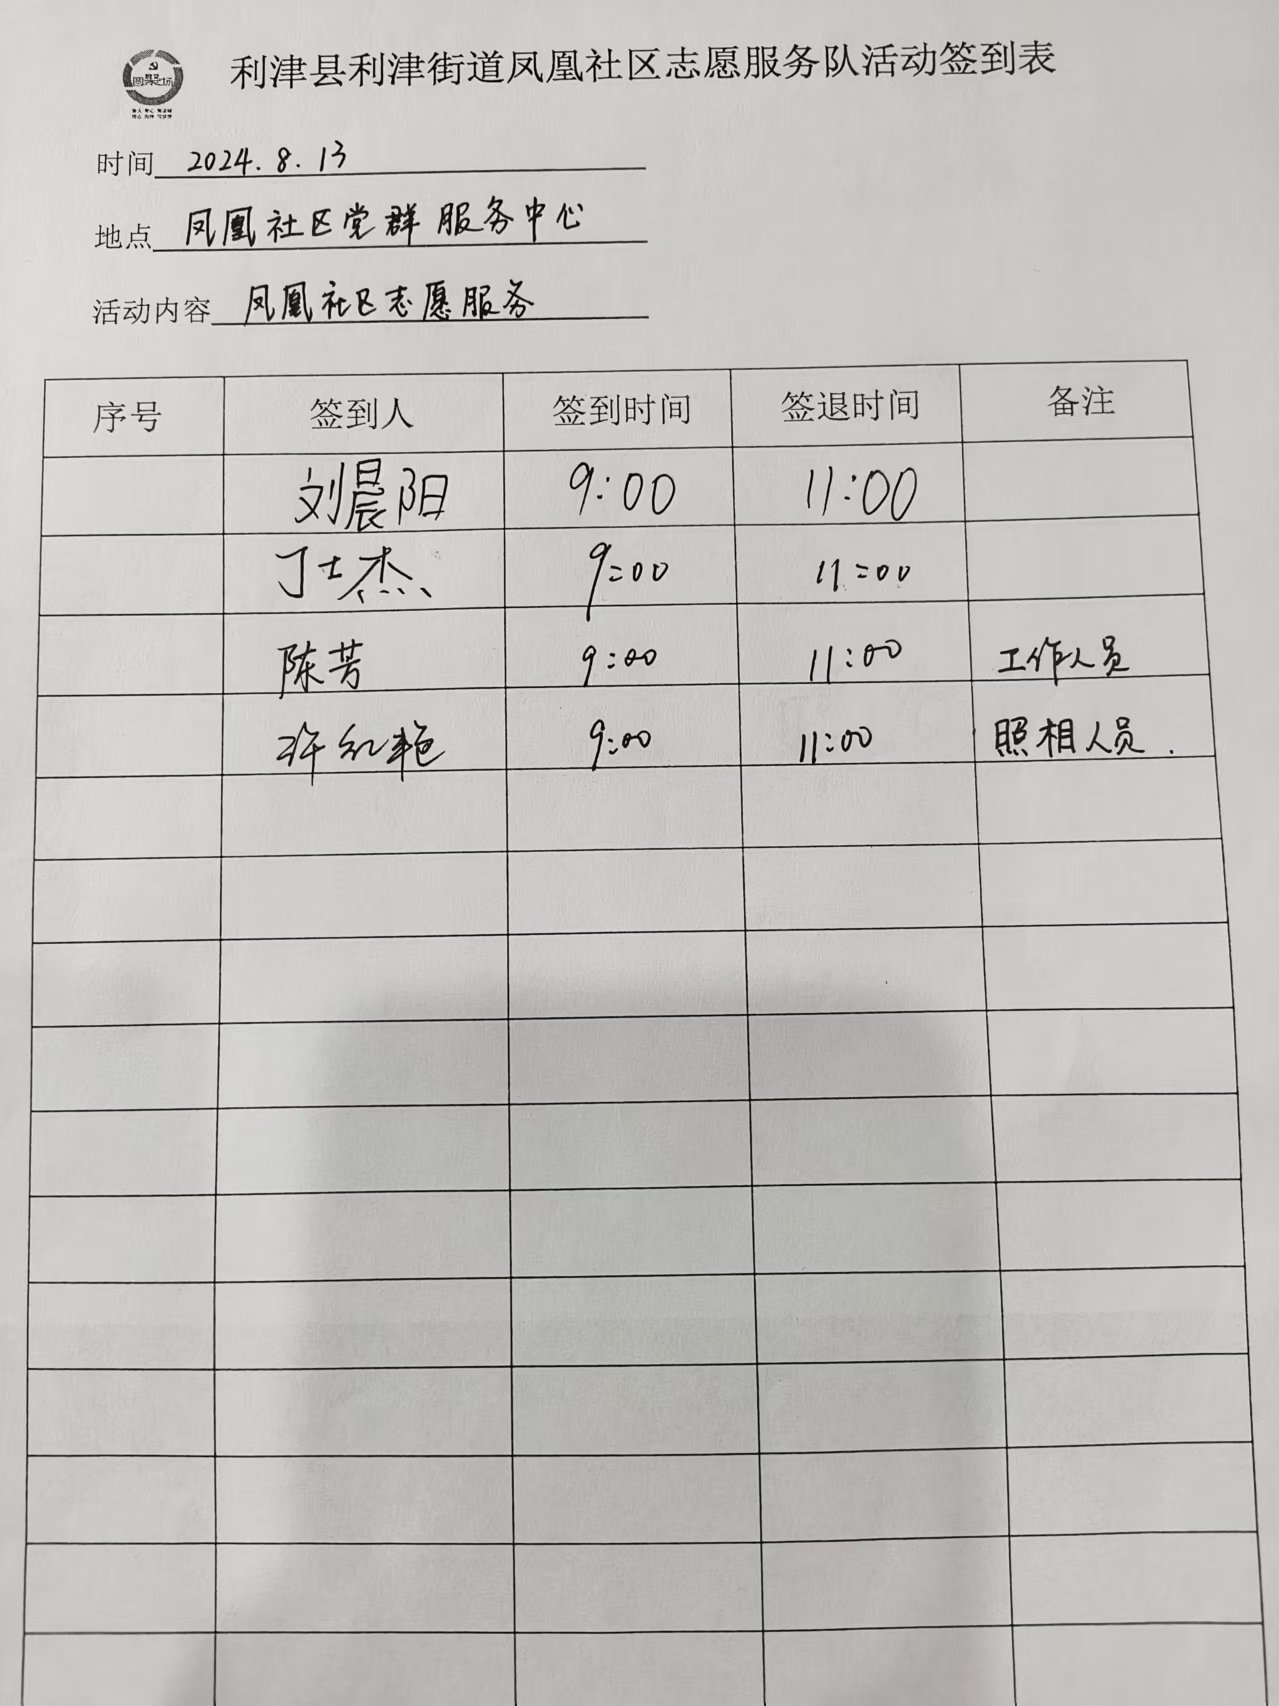 利津县利津街道凤凰社区志愿服务队活动签到表
时间 2024.8.13
地点 凤凰社区党群服务中心
活动内容 凤凰社区志愿服务
序号 签到人 签到时间 签退时间 备注
刘晨阳 9:00 11:00
丁士杰 9:00 11:00
陈芳 9:00 11:00 工作人员
许红艳 9:00 11:00 照相人员.